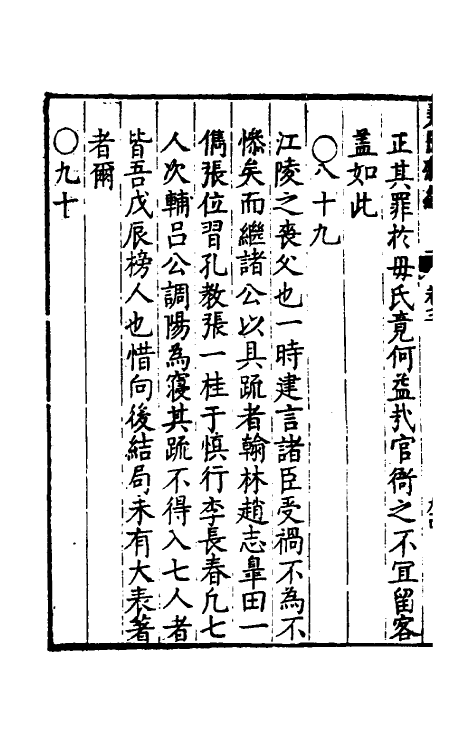 正其罪於毋氏竟何益哉官衙之不宜留客
盖如此
○八十九
江陵之丧父也一時建言諸臣受禍不為不
慘矣而繼諸公以具疏者翰林趙志臯田一
儁張位習孔教張一桂于慎行李長春凢七
人次輔吕公調陽為寢其疏不得入七人者
皆吾戊辰榜人也惜向後結局未有大表著
者爾
○九十